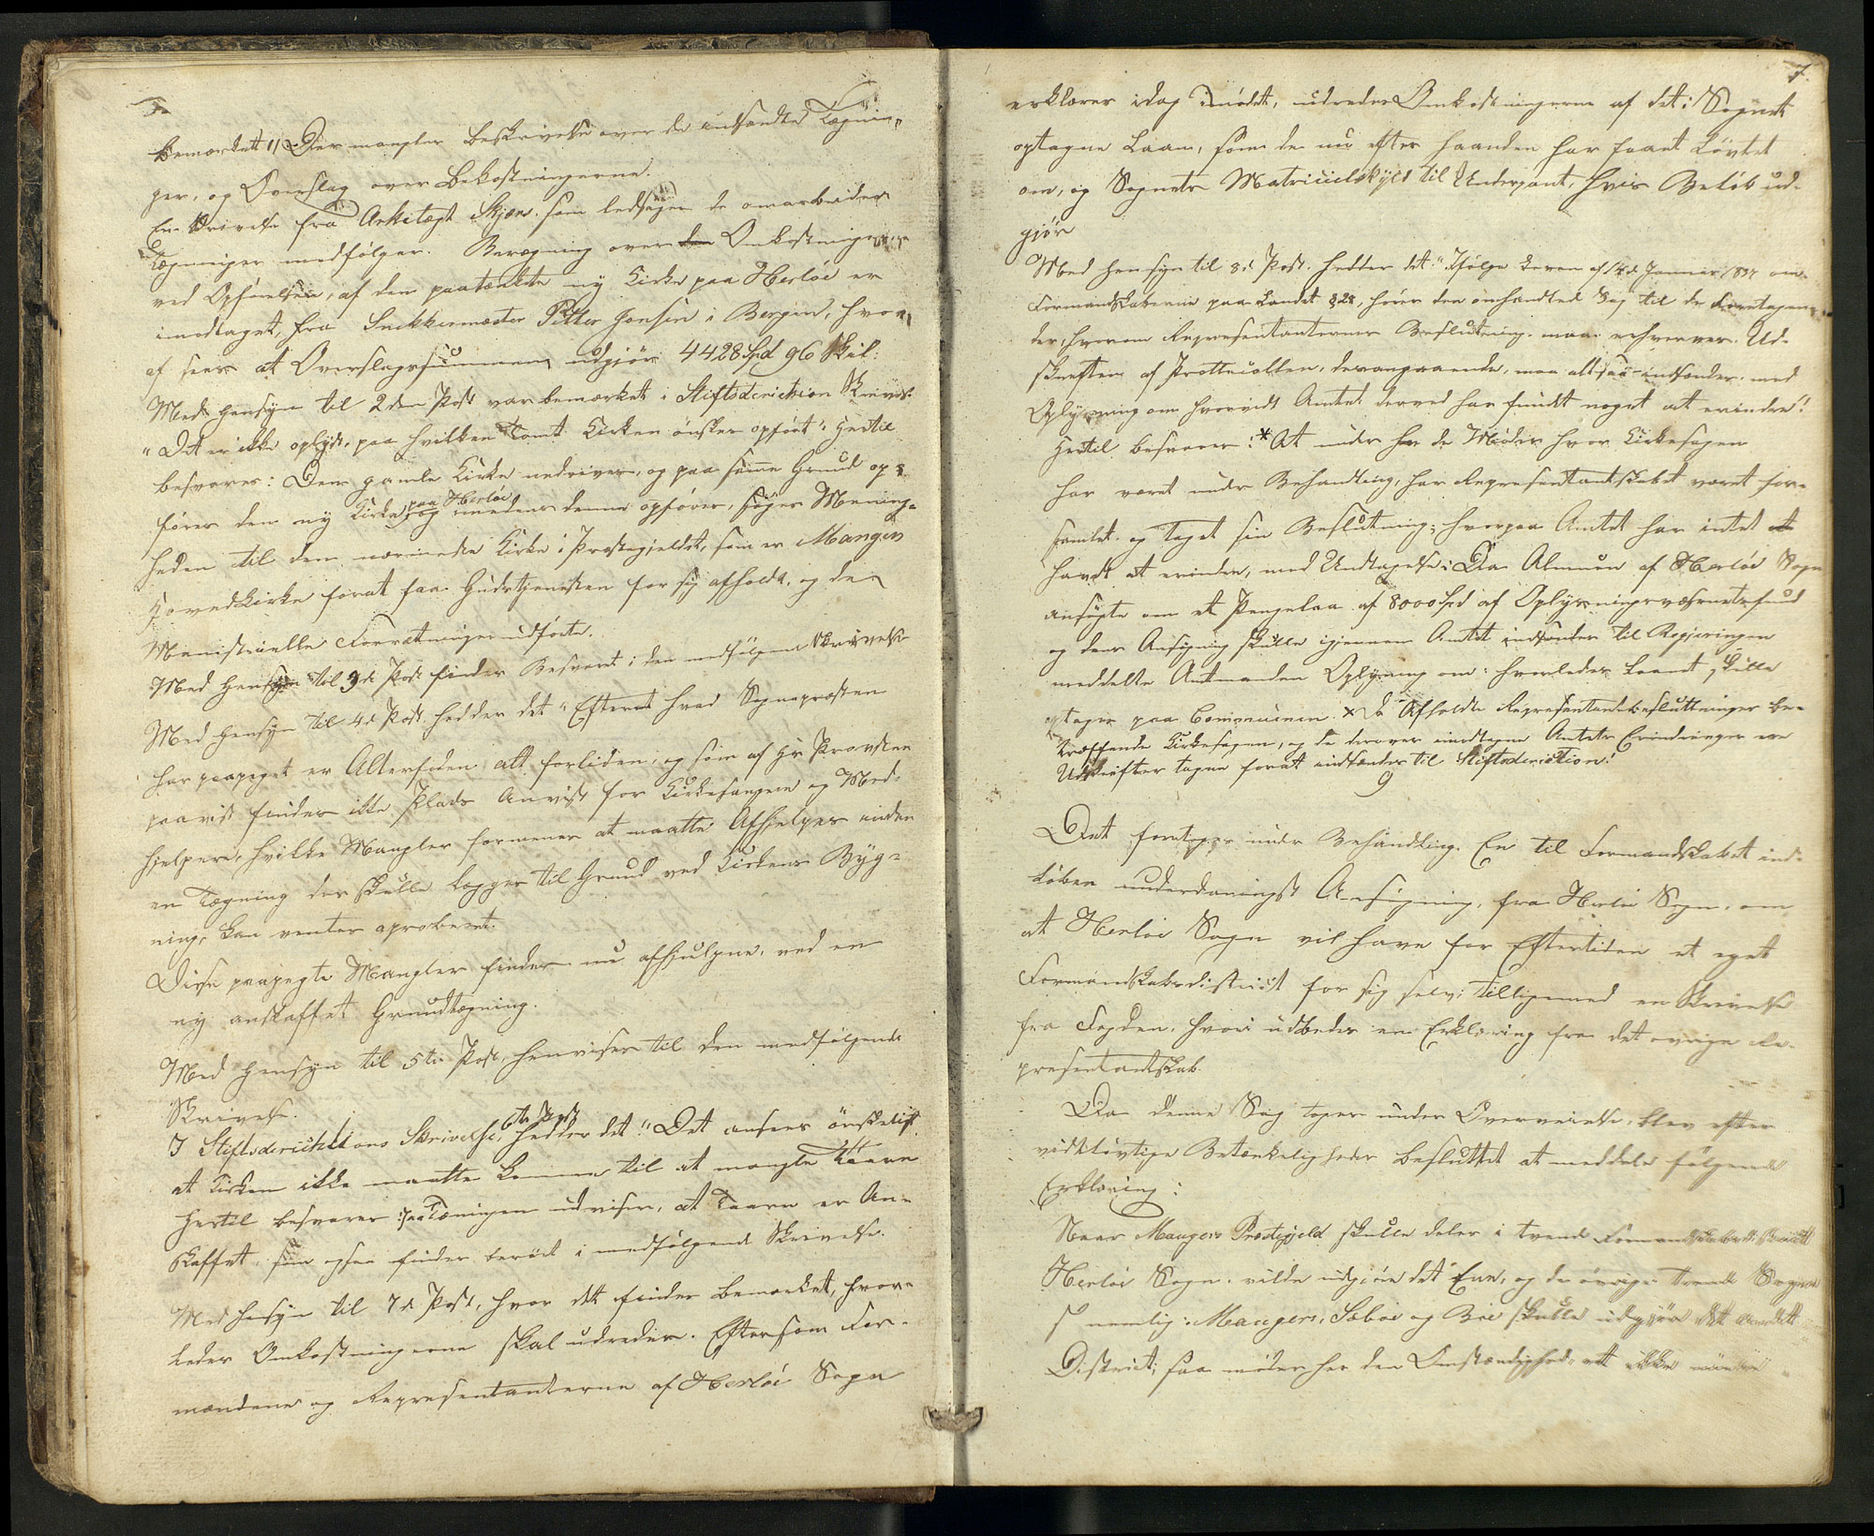 bemærket 1) Der mangler Beskrivelse over de indsendte Tegnin„
ger, og Overslag over Bekostningerne.
En Skrivelse fra Arkitægt Skjøn. som ledsager de omarbeidede
Tegninger medfølger. Beregning over den Omkostningerne
ved Opførelsen, af den paatænkte ny Kirke paa Herløe er
imodtaget, fra Snekkermæster Petter Jonsen i Bergen, hvor„
af sees at Overslagssummen udgjør 4428 Spd 96 Skil:
Med Hensyn til 2den Post var bemærket i Stiftsdirection Skrivels:
"Det er ikke oplyst, paa hvilken Tomt Kirken ønskes opført" Hertil
besvares: Den gamle Kirke nedrives, og paa samme Grund op=
føres den ny Kirke paa Herløe og imedens denne opføres, søger Menig=
heden til den nærmeste Kirke i Præstegjeldet, som er Manger
Hovedkirke forat faa Gudstjenesten for sig afholdt, og den
Ministerielle Forretninger udførte.
Med Hensyn til 3de Post findes Besvart i den medfølgende Skrivelse
Med Hensyn til 4de Post hedder det "Efterat hvad Sognepræsten
har paapeget er Alterfoden alt forliden, og som af Hr Provsten
paavist findes ikke Plads Anvist for Kirkesangeren og Med=
hjelpere, hvilke Mangler formenes at maatte Afhjelpes inden
en Tegning der skulle lægges til Grund ved Kirkens Byg=
ning, kan ventes aproberet.
Disse paapegte Mangler findes nu afhjulpne, ved en
ny anskaffet Grundtegning.
Med Hensyn til 5te Post, henvises til den medfølgende
Skrivelse.
I Stiftsdirecktions Skrivelse, 6te Post hedder det: "Det ansees ønskeligt,
at Kirken ikke maatte komme til at mangle Taarn
Hertil besvares: paa Tegningen udvises, at Taarn er An=
skaffet, som ogsaa findes berørt i medfølgende Skrivelse.
Med Hensyn til 7de Post, hvor dett findes bemærket, hvor=
ledes Omkostningerne skal udredes. Eftersom For=
mændene og Repræsentanterne af Herløe Sogn
7.
erklærer idag i mødet, udredes Omkostningerne af det i Sognet
optagne Laan, som de nu efter haanden har faaet Løvtet
om, og Sognets Matriculskyld til Underpant, hvis Beløb ud=
gjør
Med Hensyn til 8de Post. hedder det: "Ifølge Loven af 14de Januar 1837 om
Formandskaberne paa Landet §28, hører den omhandlede Sag til de Foretagen„
der, hvorom Repræsentanternes Beslutning maa erhverves. Ud=
skrifter af Prottucollen, desangaaende, maa altsaa indsendes med
Oplysning om hvorvidt Amtet derved har fundt noget at erindre"
Hertil besvares: * At under har de Møder hvor Kirkesagen
har været under Behandling, har Representantskabet været for=
samlet og taget sin Beslutning; hvorpaa Amtet har intet at
havdt at erindre, med Undtagelse: Da Almuen af Herløe Sogn
ansøgte om et Pengelaan af 8000 Spd af Oplysningsvæsenetsfond
og dens Ansøgning skulle igjennem Amtet indsendes til Regjeringen
meddelte Amtmanden Oplysning om: hvorledes Laanet skulle
optages paa Communen. × De Afholdte Representantbeslutninger be=
træffende Kirkesagen, og de derover imodtagne Amtets Erindringer ere
Udskrifter tagne forat indsændes til Stiftsdirection!
9
Det foretages under Behandling. En til Formandskabet ind=
løben underdanigst Ansøgning, fra Herløe Sogn, om
at Herløe Sogn vil have for Eftertiden et eget
Formandskabsdistrict for sig selv; tilligemed en Skrivelse
fra Fogden, hvori udbedes en Erklæring fra det øvrige Re=
presentantskab.
Da denne Sag toges under Overveielse, blev efter
vidtløvtige Betænkeligheder besluttet at meddele følgende
Erklæring:
Naar Mangers Præstegjeld skulle deles i tvende Formandskabsdistrict
Herløe Sogn. vilde udgjøre det Ene, og de øvrige trende Sogne
s nemlig: Manger, Sæbøe og Bøe skulle udgjøre det andet
District; saa møder her den Omstændighed, at ikke